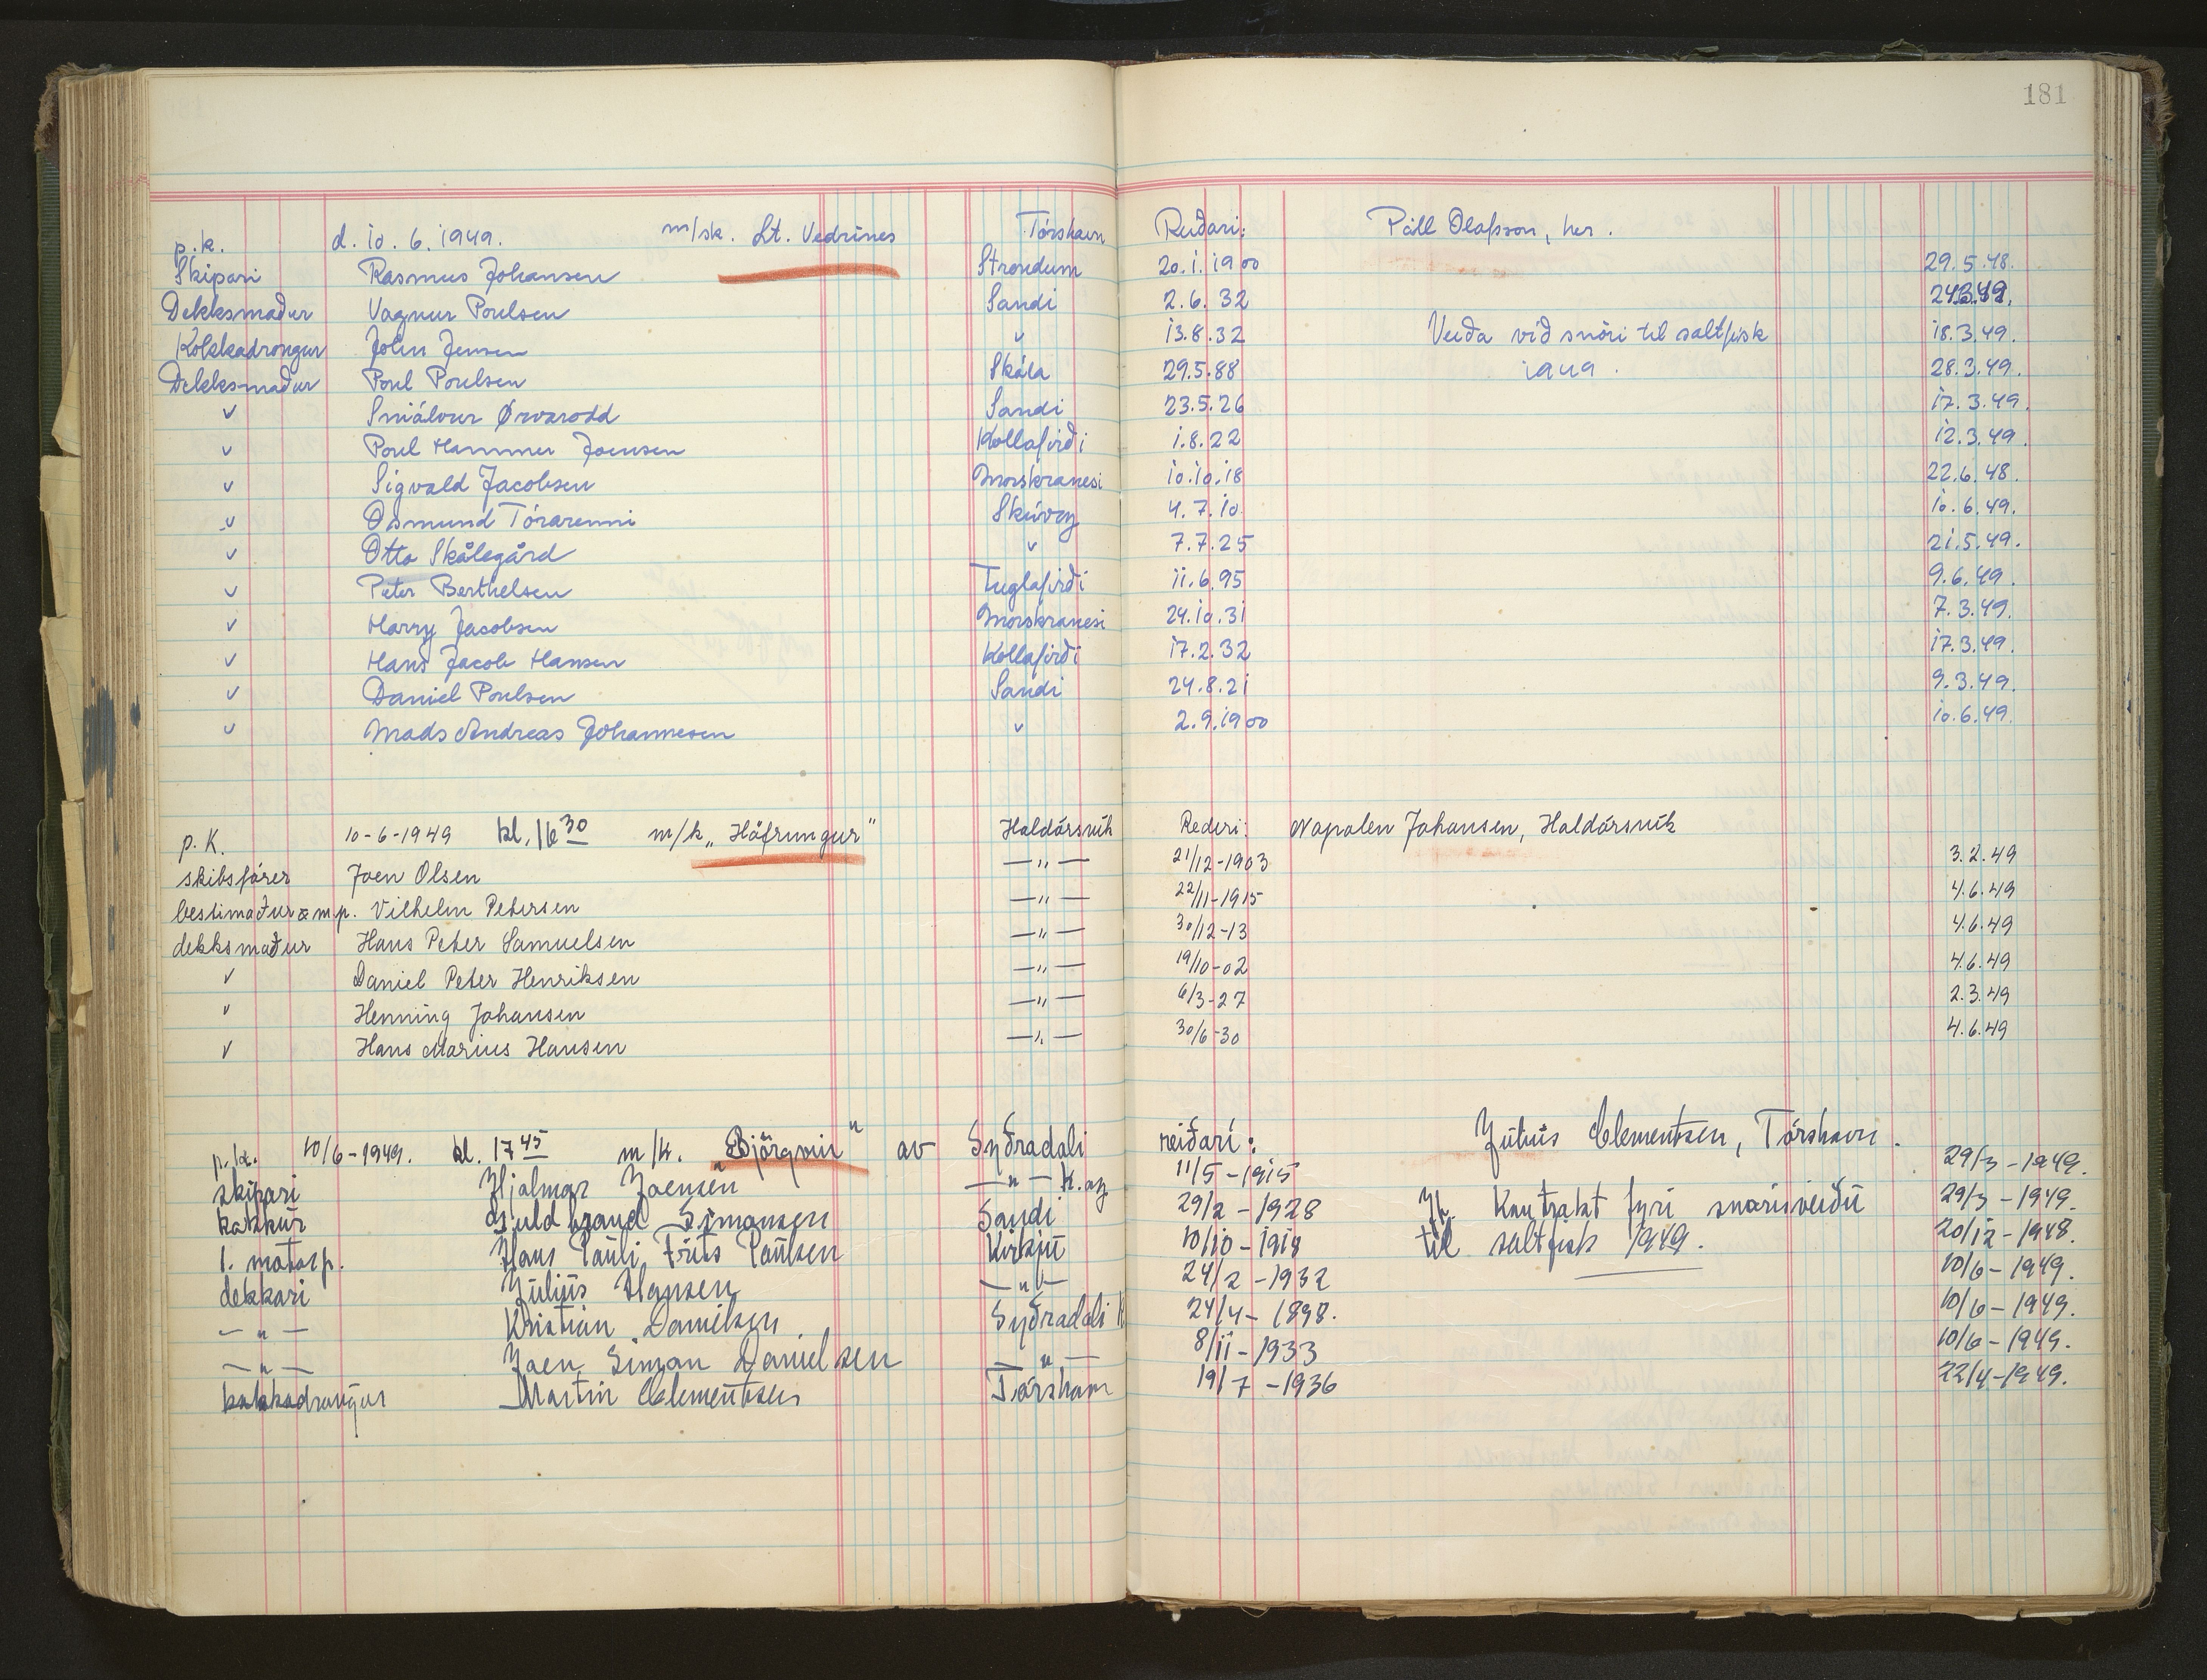 181
p.k. d. 10.6.1949. m/sk. Lt. Vedrines Tórshavn Reiðari: Páll Olafsson, her.
Skipari Rasmus Johansen Strondum 20.1.1900 29.5.48.
Dekksmaður Vagnur Poulsen Sandi 2.6.32
Kokkadrongur John Jensen v 13.8.32 Veiða við snöri til saltfisk 18.3.49.
Dekksmaður Poul Poulsen Skála 29.5.88 28.3.49.
v Sniálvur Ørvarodd Sandi 23.5.26 17.3.49.
v Poul Hammer Joensen Kollafirði 1.8.22 12.3.49.
v Sigvald Jacobsen Morskranesi 10.10.18 22.6.48.
v Osmund Tórarenni Skúvoy 4.7.10 10.6.49.
v Otto Skålegård v 7.7.25 21.5.49.
v Peter Berthelsen Fuglafirði 11.6.95 9.6.49.
v Harry Jacobsen Morskranesi 24.10.31 7.3.49.
v Hans Jacob Hansen Kollafirði 17.2.32 17.3.49.
v Daniel Poulsen Sandi 24.8.21 9.3.49.
v Mads Andreas Johannesen v 2.9.1900 10.6.49.
p.K. 10-6-1949 kl. 16 30 m/k „Háfrungur" Haldórsvík Rederi: Napolen Johansen, Haldórsvík
skibsförer Joen Olsen —"— 21/12-1903 3.2.49
bestimaður & m.p. Vilhelm Petersen —"— 22/11-1915 4.6.49
dekksmaður Hans Peter Samuelsen —"— 30/12-13 4.6.49
v Daniel Peter Henriksen —"— 19/10-02 4.6.49
" Henning Johansen —"— 6/3-27 2.3.49
v Hans Marius Hansen —"— 30/6-30 4.6.49
p.k. 10/6-1949. kl. 17 45 m/k. "Björgvin" av Syðradali reiðari: Júlíus Clementsen, Tórshavn.
skipari Hjalmar Joensen —"— K.oy 11/5-1915 29/3-1949.
kokkur Guldbrand Simonsen Sandi 29/2-1928 Jf. Kontrakt fyri snørisveiðu 29/3-1949.
1. motorp. Hans Pauli Frits Poulsen Kirkju til saltfisk 1949. 20/12-1948.
dekkari Júlíus Hansen —"— 24/2-1932 10/6-1949.
—"— Kristian Danielsen Syðradali K 24/4-1898. 10/6-1949.
—"— Joen Simon Danielsen —"— 8/11-1933 10/6-1949.
kokkadrongur Martin Clementsen Tórshavn 19/7-1936 22/4-1949.